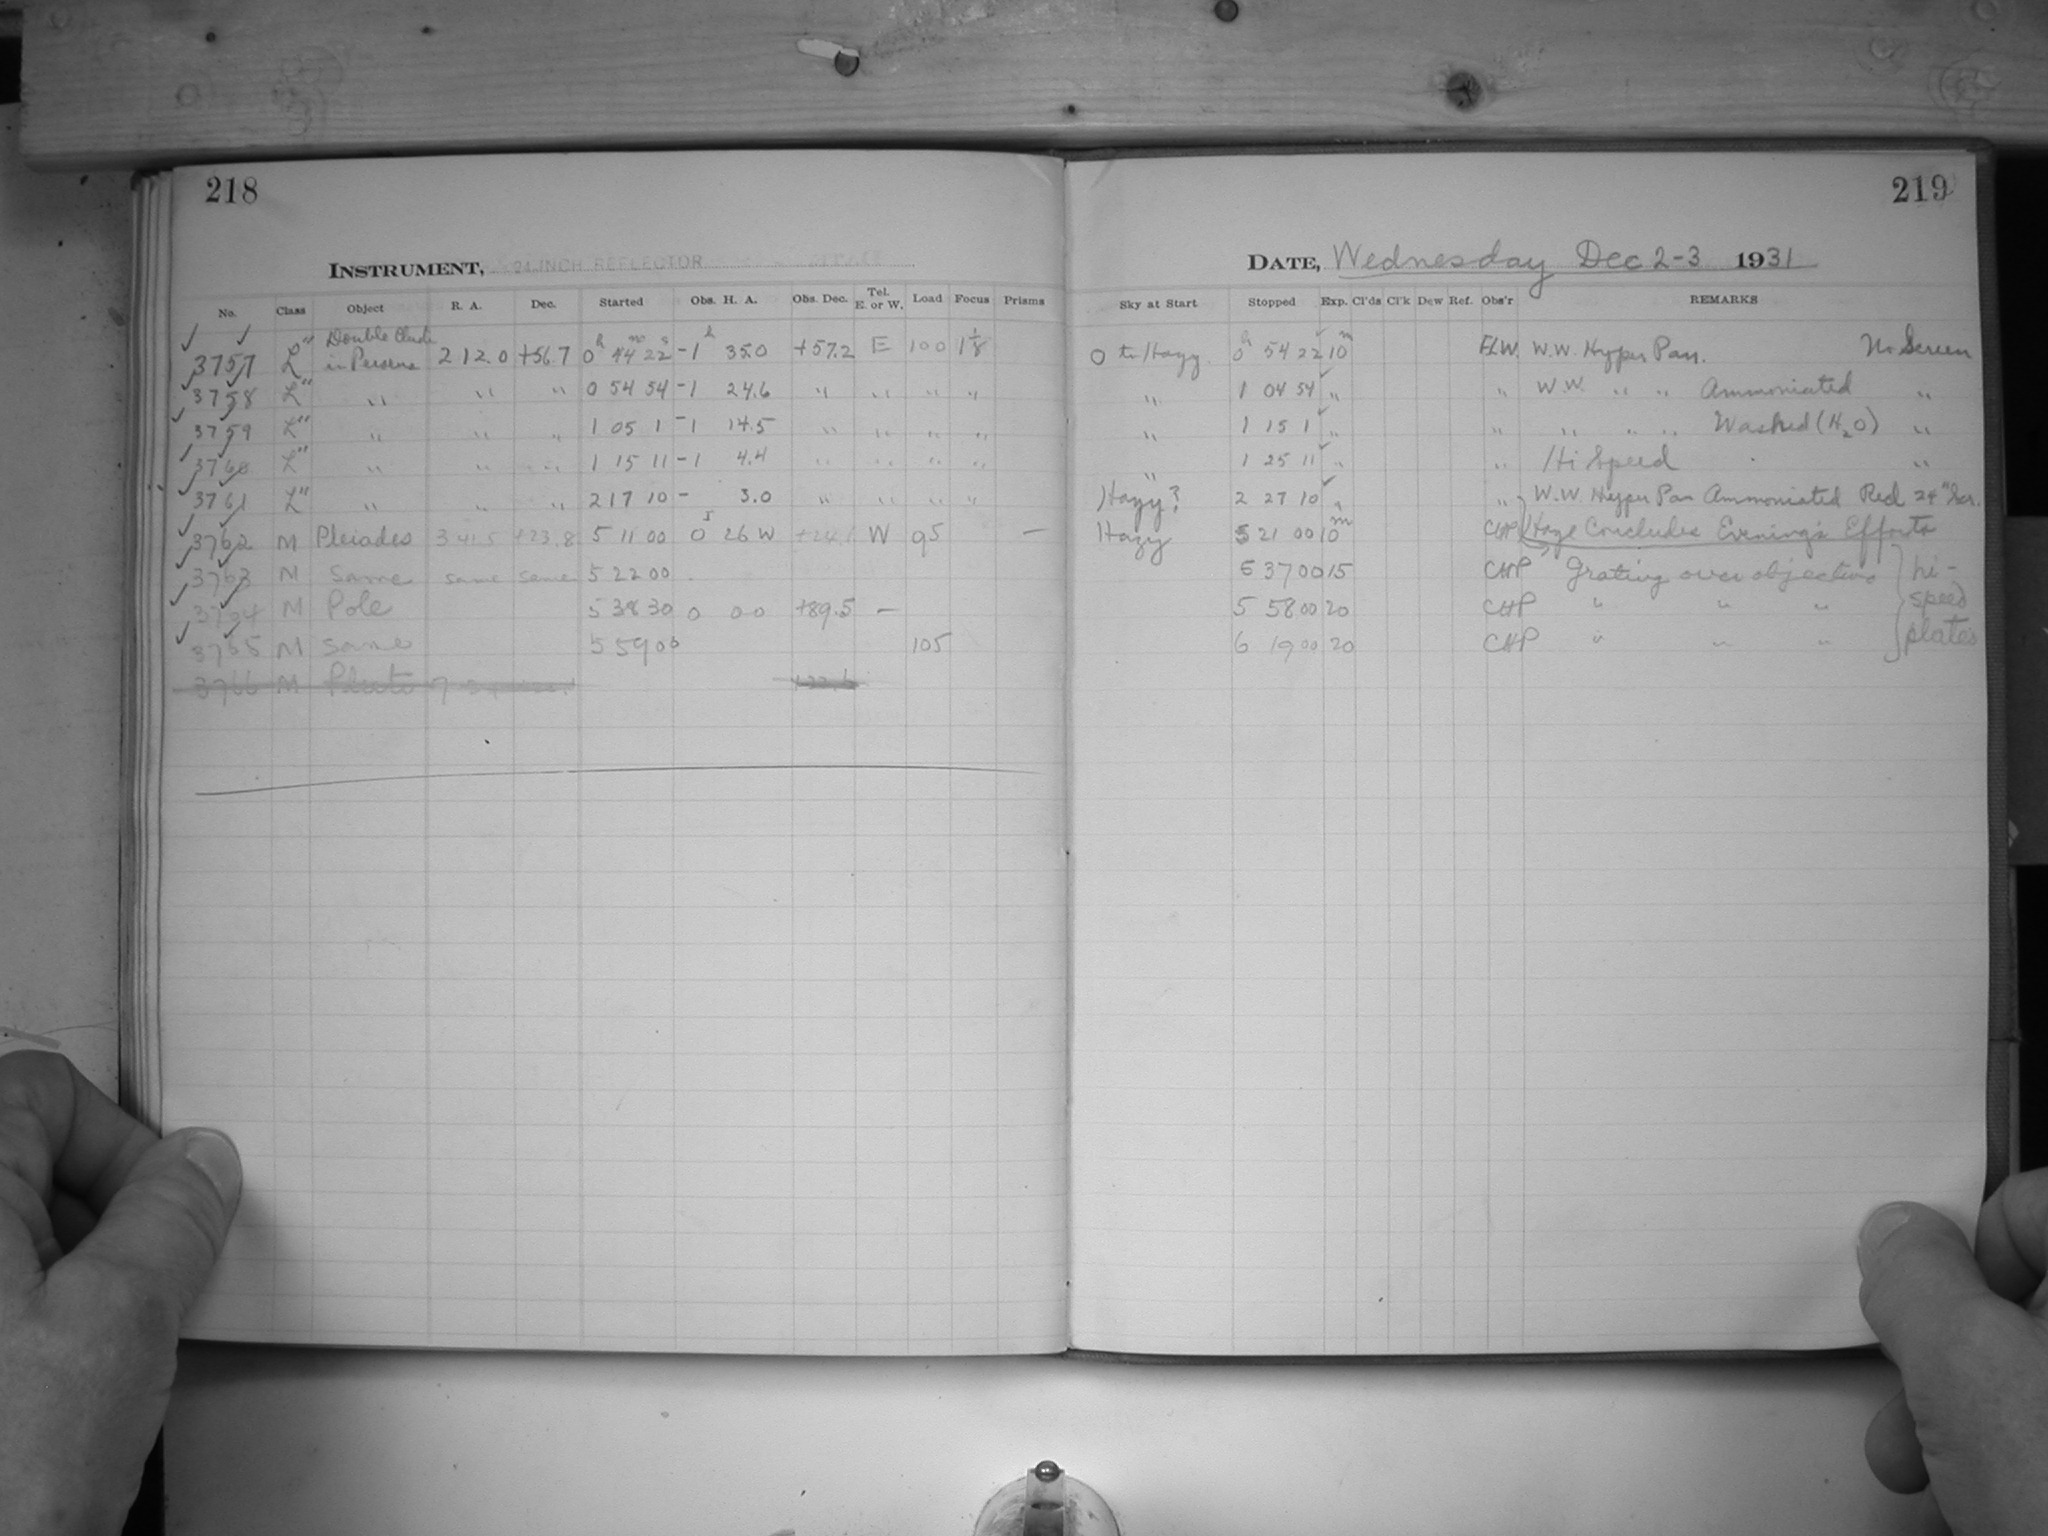 218
INSTRUMENT, 24 INCH REFLECTOR
No. Class Object R. A. Dec. Started Obs. H. A. Obs. Dec. Tel. E. or W. Load Focus Prisms
3757 L" Double Clust. in Perseus 2 12.0 +56.7 0h 44m 22s -1h 35.0 +57.2 E 100 1 1/8
3758 L" " " " 0 54 54 -1 24.6 " " " "
3759 L" " " " 1 05 1 -1 14.5 " " " "
3760 L" " " " 1 15 11 -1 4.4 " " " "
3761 L" " " " 2 17 10 - 3.0 " " " "
3762 M Pleiades 3 41.5 +23.8 5 11 00 0 26 W +24.1 W 95 —
3763 M Same same same 5 22 00
3764 M Pole 5 38 30 0 00 +89.5 —
3765 M same 5 59 00 105
3766 M Pluto 7
219
DATE, Wednesday Dec 2-3 1931
Sky at Start Stopped Exp. Cl'ds Cl'k Dew Ref. Obs'r REMARKS
0 to Hazy. 0h 54 22 10m F.L.W. W.W. Hyper Pan. No Screen
" 1 04 54 " " W.W. " " Ammoniated "
" 1 15 1 " " " " " Washed (H2O) "
" 1 25 11 " " Hi Speed "
Hazy? 2 27 10 " " W.W. Hyper Pan Ammoniated Red 24" Scr.
Hazy 5 21 00 10m CHP Haze Concludes Evening's Efforts
5 37 00 15 CHP Grating over objective hi-
5 58 00 20 CHP " " " speed
6 19 00 20 CHP " " " plates